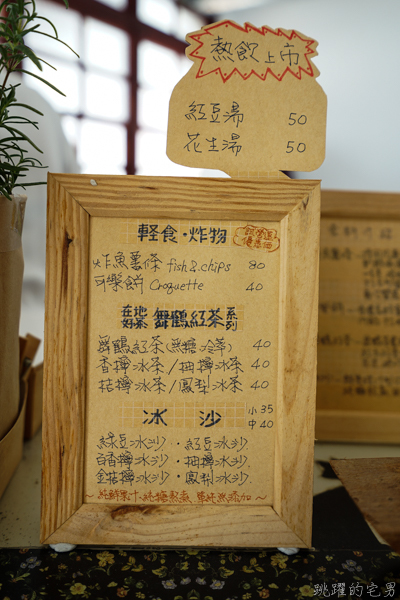 熱飲上市
紅豆湯 50
花生湯 50
輕食·炸物
炸魚薯條 fish & chips 80
可樂餅 Croquette 40
在地好茶 舞鶴紅茶系列
舞鶴紅茶(無糖 冷/熱) 40
香檸冰茶/柚檸冰茶 40
桔檸冰茶/鳳梨冰茶 40
冰沙 小35 中40
綠豆冰沙·紅豆冰沙
百香檸冰沙·柚檸冰沙
金桔檸冰沙·鳳梨冰沙
跳躍的宅男